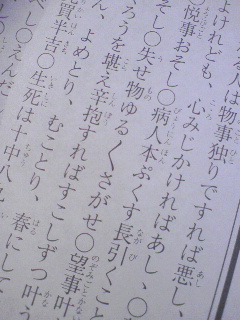 る人は物事独りですれば悪し、
よけれども、心みじかければあし、○
○悦事おそし○病人本ぷくす長引くこと
そし○失せ物ゆるくさがせ○望事叶
ろうを堪え辛抱すればすこしずつ叶う
よめとり、むことり、春にして
半吉○生死は十中八九
べし○えんだ